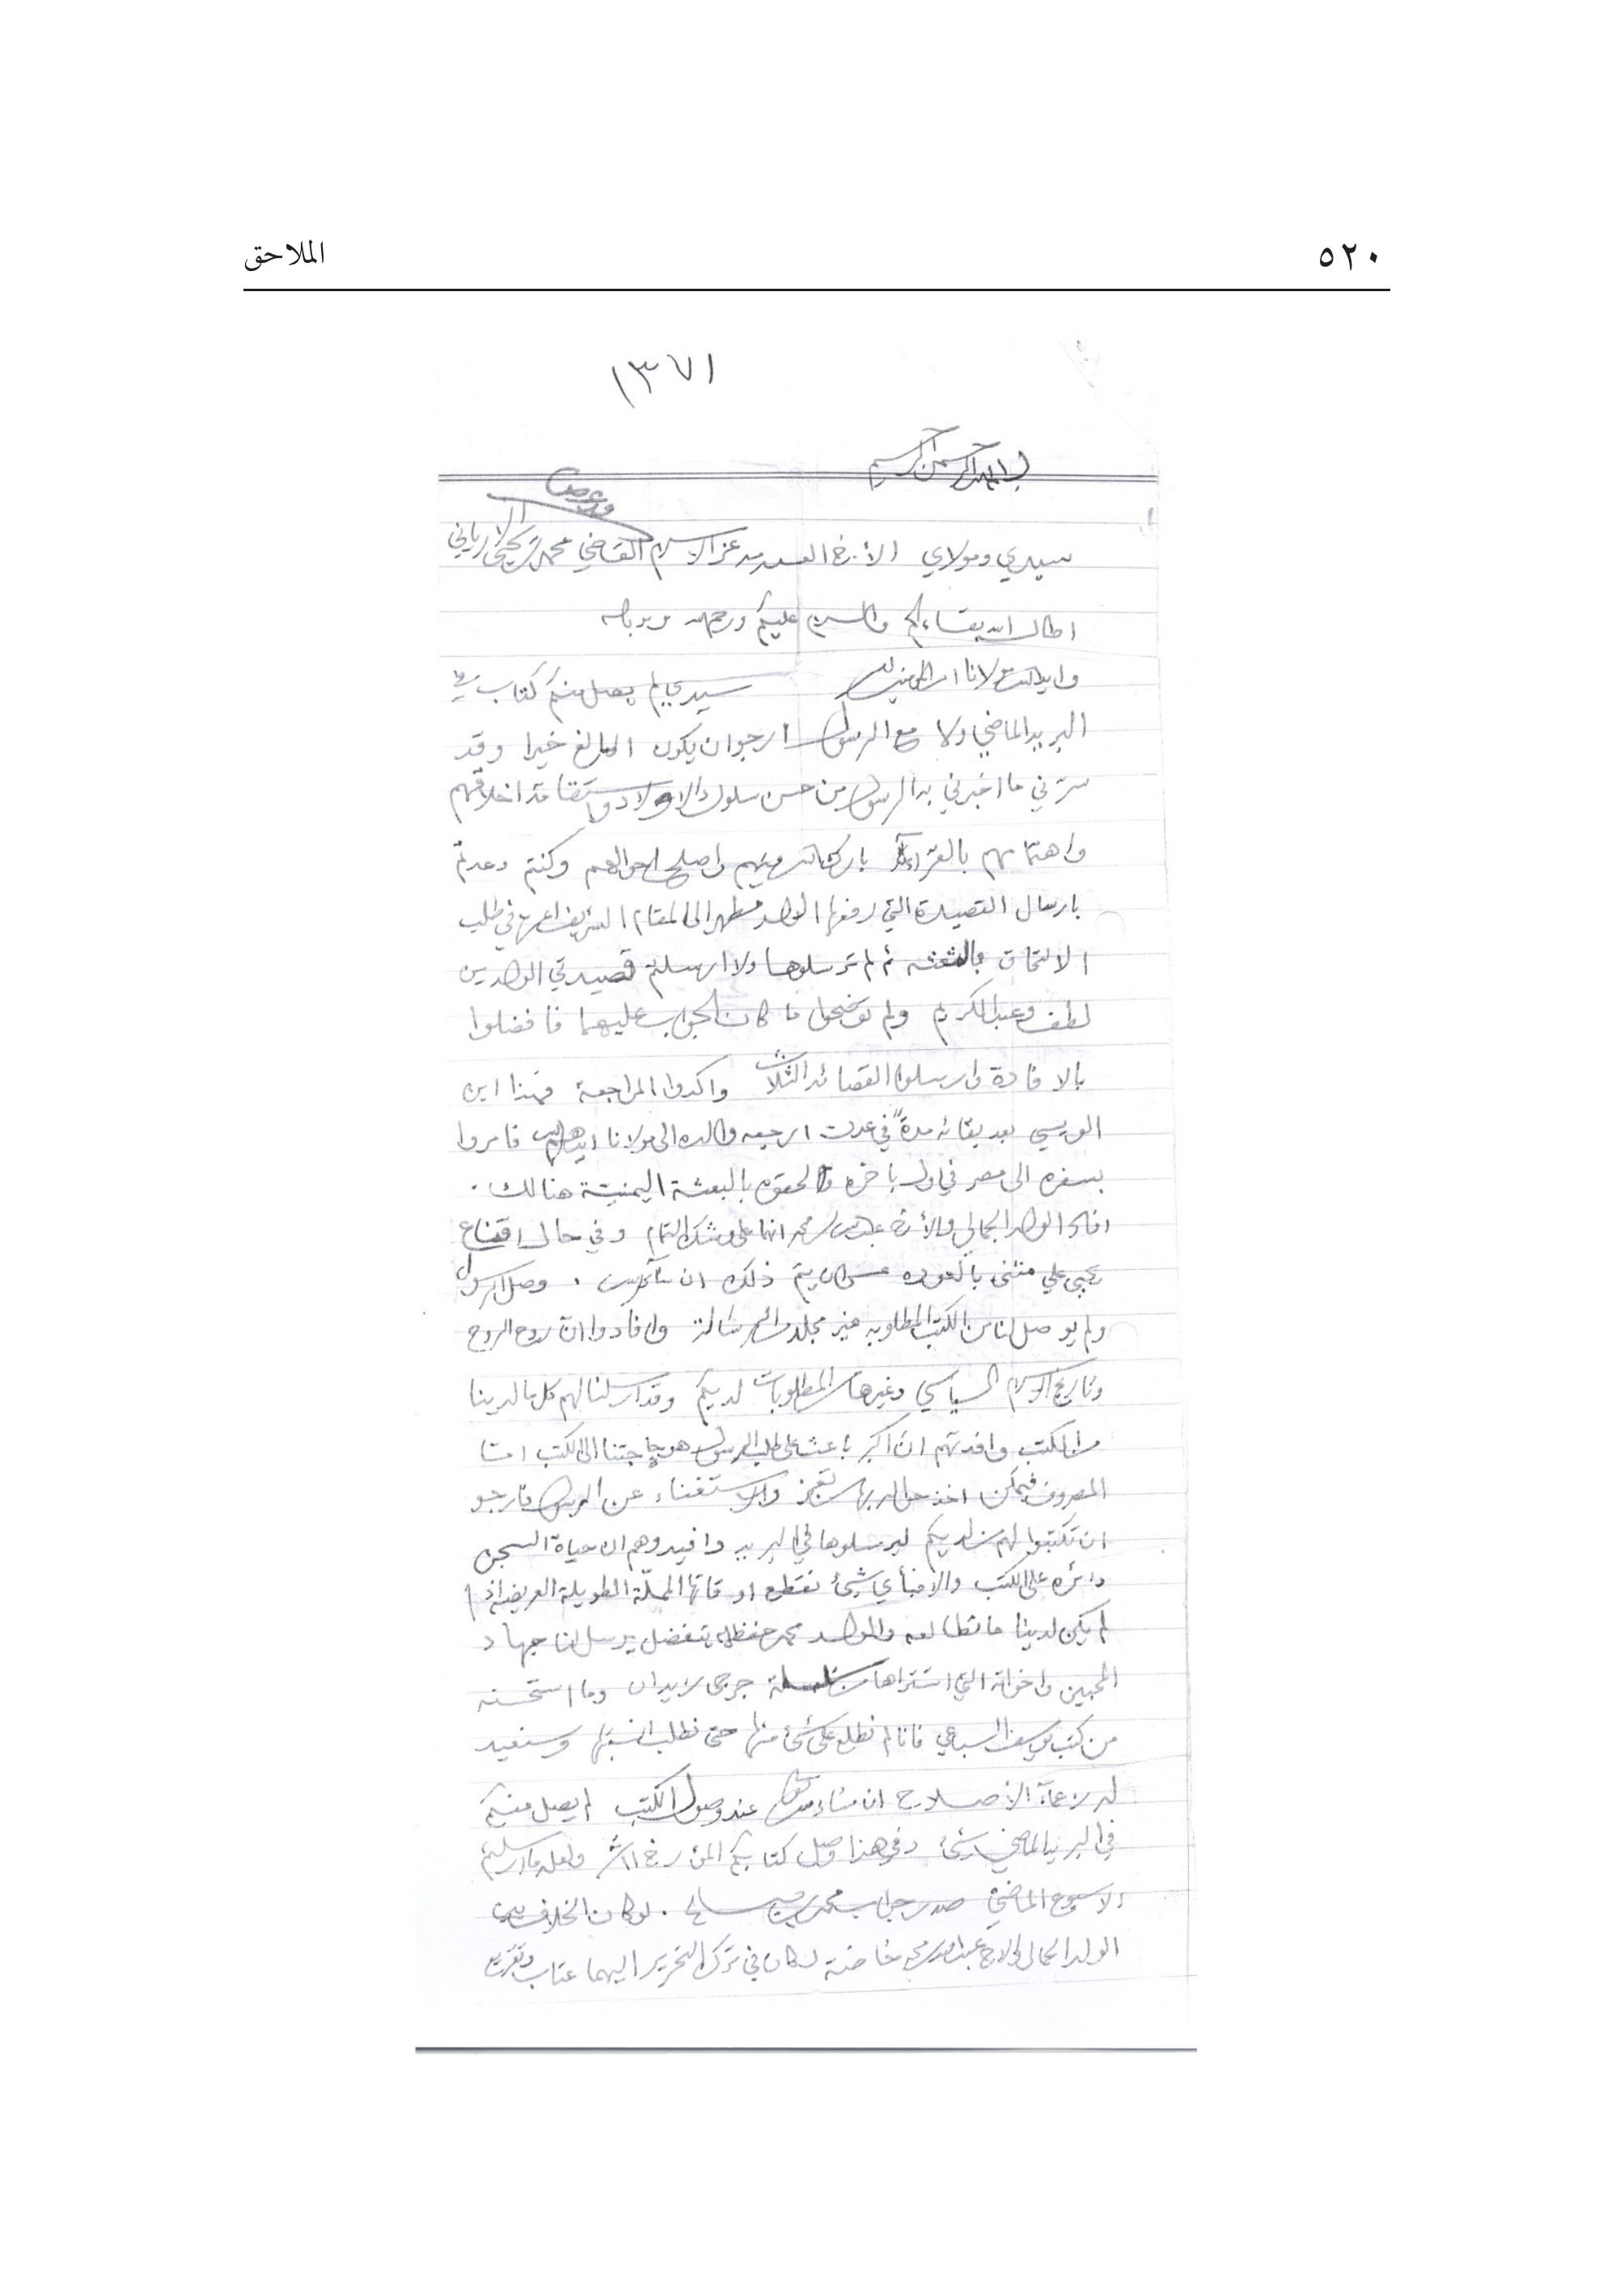 ٥٢٠
الملاحق
١٣٧١
بسم الله الرحمن الرحيم
سيدي ومولاي الأخ العلامة عز الاسلام القاضي محمد بن يحيى الارياني
اطال الله بقاءكم والسلام عليكم ورحمة الله وبركاته
سيدي لم يصل منكم كتاب في
البريد الماضي ولا مع الرسول ارجو ان يكون المانع خيرا وقد
سرني ما اخبرني به الرسول من حسن سلوك الاولاد واستقامة اخلاقهم
واهتمامهم بالقراءة بارك الله فيهم واصلح احوالهم وكنتم وعدتم
بارسال القصيدة التي رفعها الولد مطهر الى المقام الشريف في طلب
الالتحاق بالبعثة ثم لم ترسلوها ولا ارسلتم قصيدتي الولدين
لطف وعبدالكريم ولم توضحوا ما كان الجواب عليهما فافضلوا
بالافادة وارسلوا القصائد الثلاث واكدوا المراجعة فهذا ابن
الويسي بعد بقائه مدة في عدن ارجعه والده الى مولانا ايده الله فامروا
بسفره الى مصر في اول باخره والحقوه بالبعثة اليمنية هنالك .
افاد الولد الجمالي والأخ عبدالله بن محمد انهما على وشك التمام وفي حال اقناع
يحيى علي مثنى بالعوده عسى ان يتم ذلك ان شاء الله . وصل الرسول
ولم يوصل لنا من الكتب المطلوبه غير مجلد من الرسالة وافادوا ان روح الروح
وتاريخ الاسلام السياسي وغيرها من المطلوبات لديكم وقد ارسلنا لهم كل ما لدينا
من الكتب وافدتهم ان اكبر باعث على طلب الرسول هو حاجتنا الى الكتب اما
المصروف فيمكن اخذ حواله بها من تعز والاستغناء عن الرسول فارجو
ان تكتبوا لهم من لديكم ليرسلوها في البريد وافيدوهم ان حياة السجن
دائره على الكتب والا فبأي شيئ نقطع اوقاتها المملّة الطويلة العريضة اذا
لم يكن لدينا ما نطالعه والولد محمد حفظه الله يتفضل يرسل لنا جهاد
المحبين واخواته التي اشتراها من سلسلة جرجي زيدان وما استحسنه
من كتب يوسف السباعي فانا لم نطلع على شيئ منها حتى نطلب الينبها وسنعيد
عند وصول الكتب لم يصل منكم
في البريد الماضي شيئ وفي هذا وصل كتابكم المؤرخ
الاسبوع الماضي صدر جواب محمد بن . لو كان الخلاف بين
الولد الجمالي والاخ عبدالله بن محمد خاصة لكان في ترك التحرير اليهما عتاب